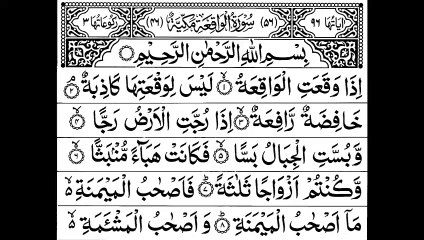 اٰيَاتُهَا ٩٦ (٥٦) سُوْرَةُ الْوَاقِعَةِ مَكِّيَّةٌ (٤٦) رُكُوْعَاتُهَا ٣
بِسْمِ اللّٰهِ الرَّحْمٰنِ الرَّحِيْمِ
اِذَا وَقَعَتِ الْوَاقِعَةُ ۙ‏﴿۱﴾ لَيْسَ لِوَقْعَتِهَا كَاذِبَةٌ ۘ‏﴿۲﴾
خَافِضَةٌ رَّافِعَةٌ ۙ‏﴿۳﴾ اِذَا رُجَّتِ الْاَرْضُ رَجًّا ۙ‏﴿۴﴾
وَّبُسَّتِ الْجِبَالُ بَسًّا ۙ‏﴿۵﴾ فَكَانَتْ هَبَآءً مُّنْۢبَثًّا ۙ‏﴿۶﴾
وَّكُنْتُمْ اَزْوَاجًا ثَلٰثَةً ؕ‏﴿۷﴾ فَاَصْحٰبُ الْمَيْمَنَةِ ۙ۬
مَاۤ اَصْحٰبُ الْمَيْمَنَةِ ؕ‏﴿۸﴾ وَاَصْحٰبُ الْمَشْـَٔمَةِ ۙ۬